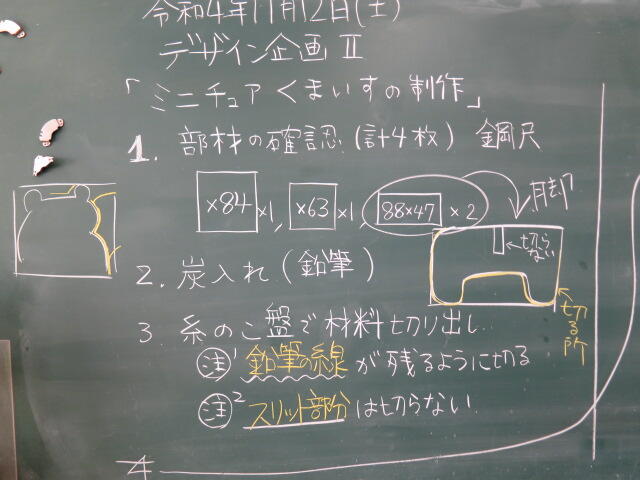 令和4年11月12日(土)
デザイン企画 Ⅱ
「ミニチュアくまいすの制作」
1. 部材の確認 (計4枚) 鋼尺
×84 ×1, ×63 ×1, 88×47 ×2
脚
←切らない
2. 炭入れ (鉛筆)
←切る所
3. 糸のこ盤で材料切り出し
注1 鉛筆の線が残るように切る
注2 スリット部分は切らない
4